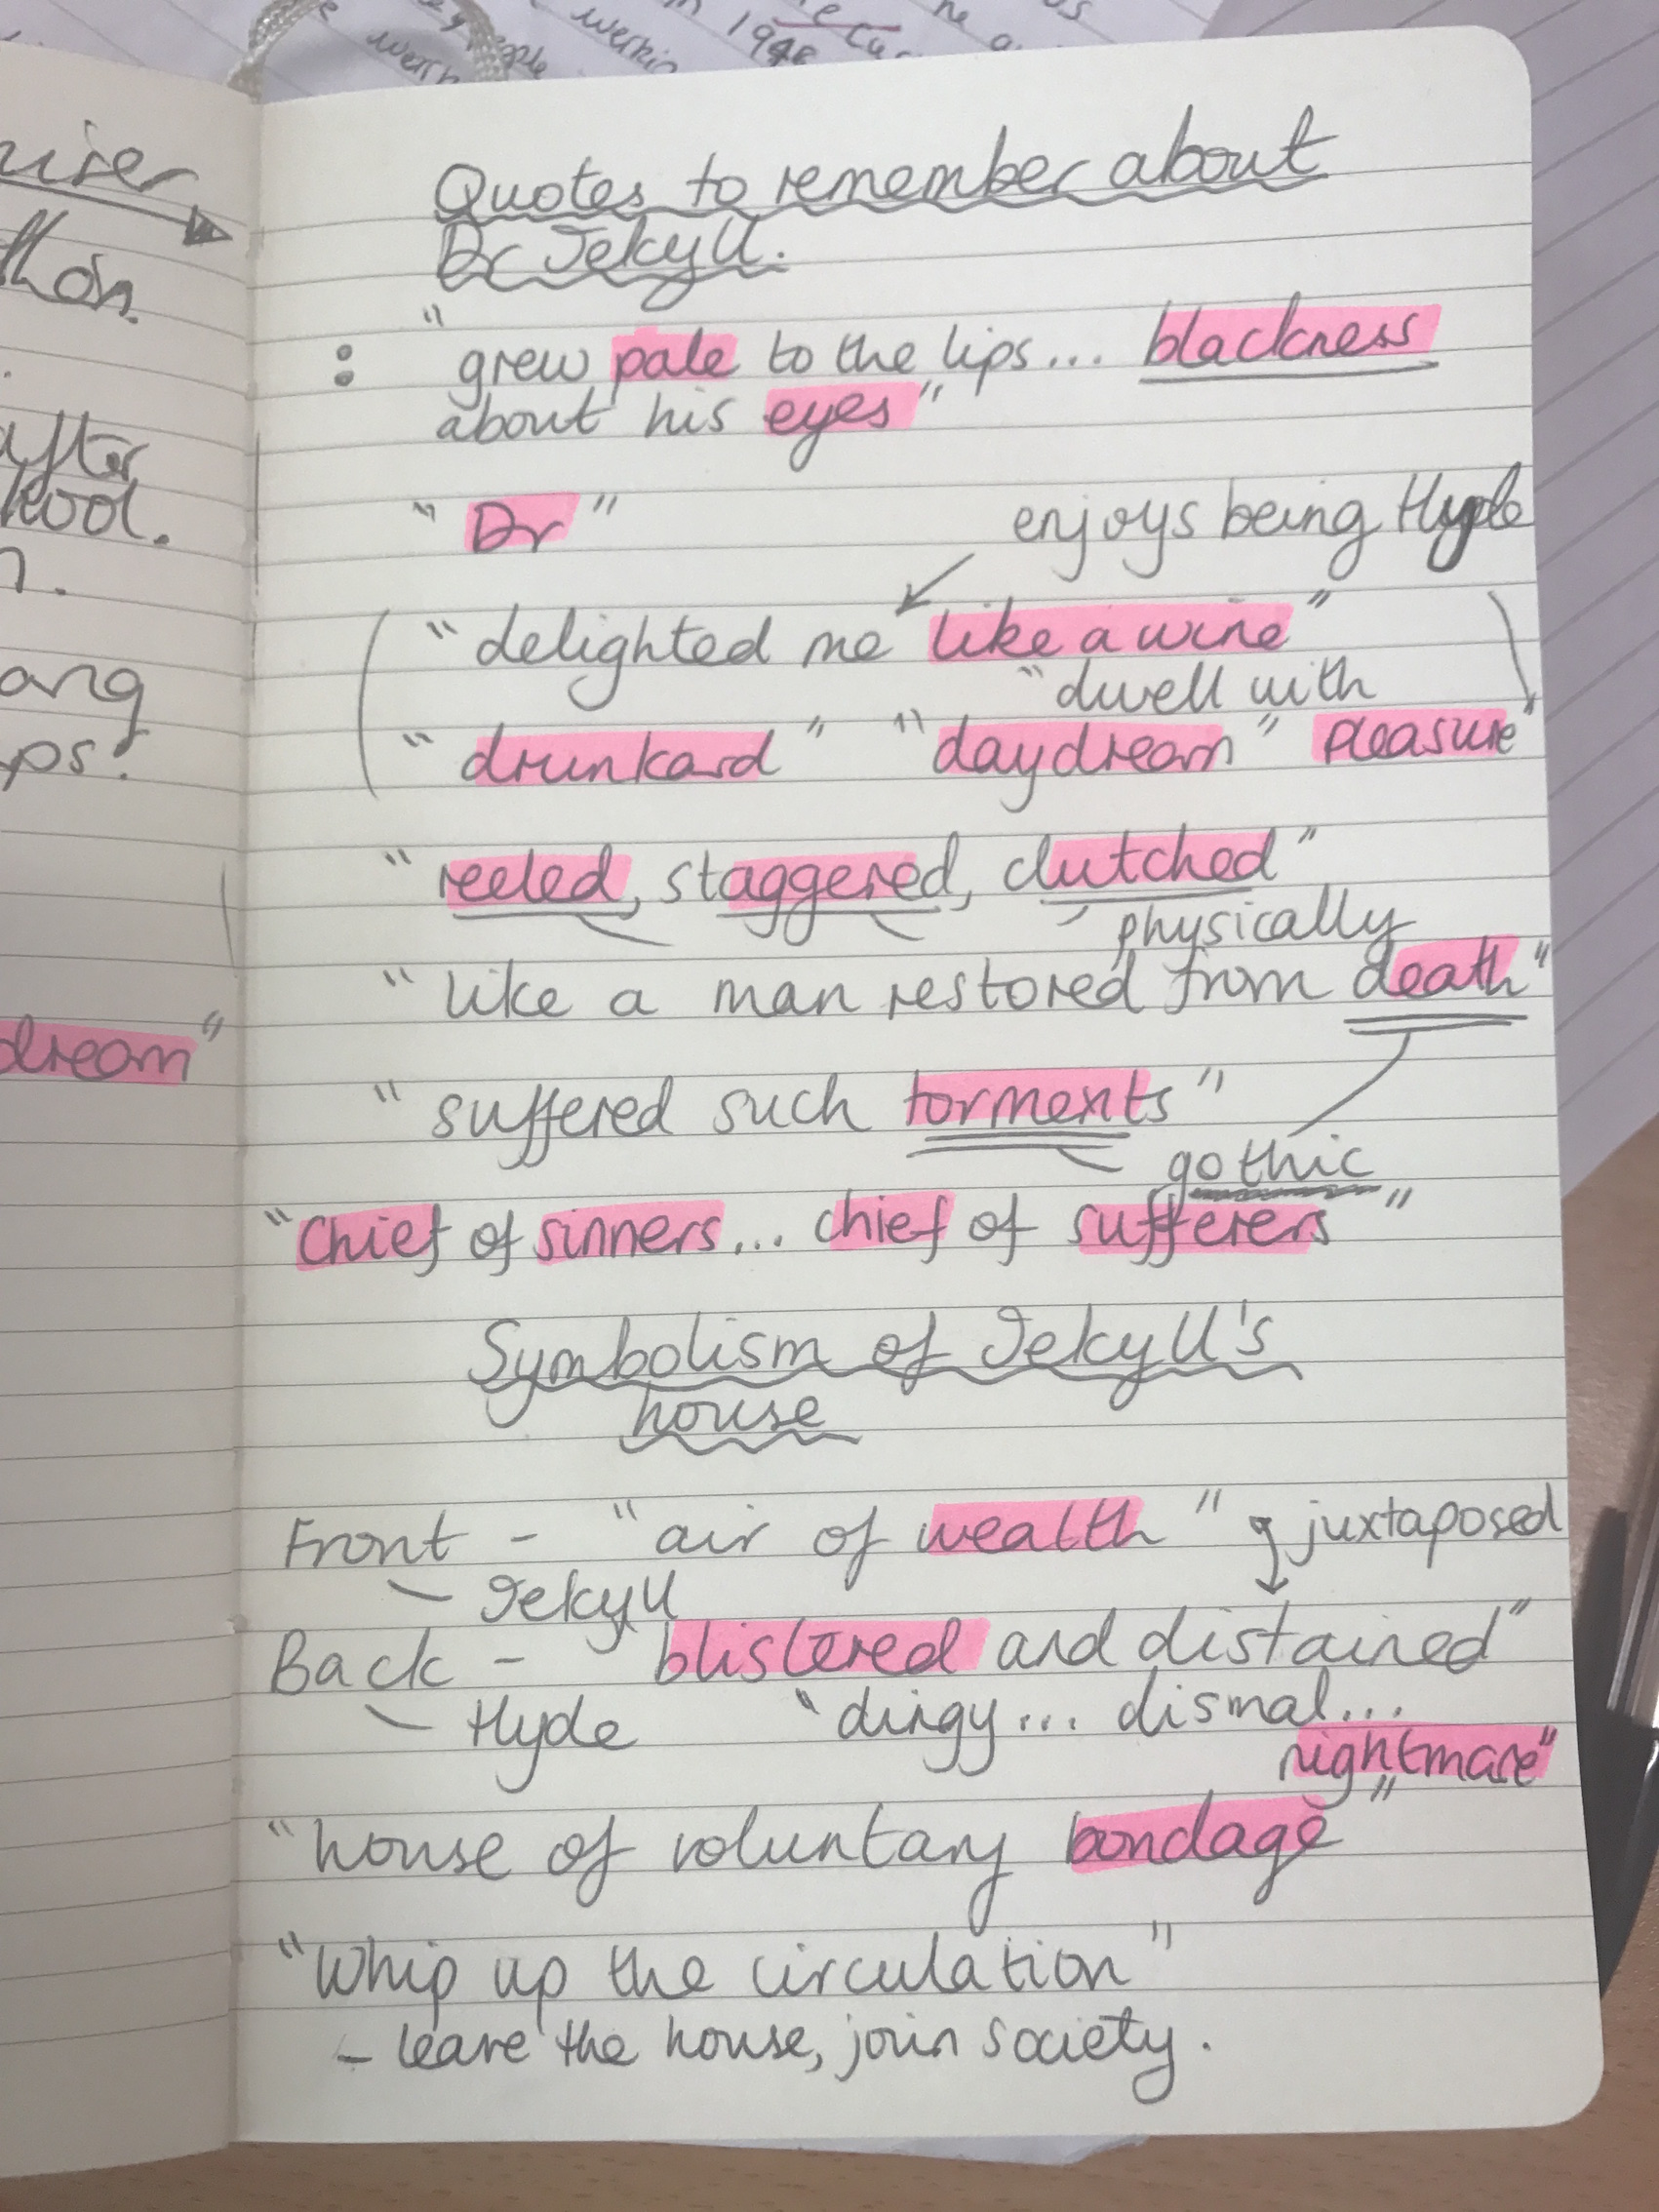 werkin
1948
people
user
thon.
after
ang
ps!
dream"
Quotes to remember about
Dr Jekyll.
"
: grew pale to the lips... blackness
about his eyes"
"Dr"
enjoys being Hyde
"delighted me like a wine"
"dwell with
"drunkard" "daydream" pleasure"
"reeled, staggered, clutched"
physically
"like a man restored from death"
"suffered such torments"
gothic
"chief of sinners... chief of sufferers"
Symbolism of Jekyll's
house
Front - "air of wealth" juxtaposed
- Jekyll
Back - blistered and distained"
- Hyde "dingy... dismal...
nightmare"
"house of voluntary bondage"
"Whip up the circulation"
- leave the house, join society.